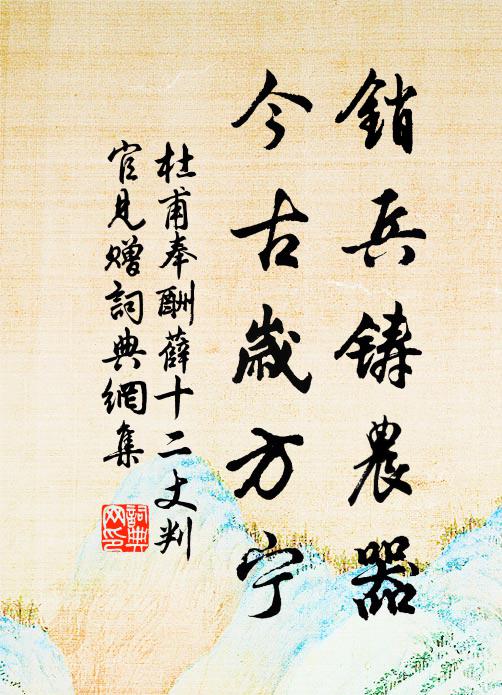 銷兵鋳農器
今古歲方宁
杜甫奉酬薛十二丈判
官見贈詞典網集
詞典网印